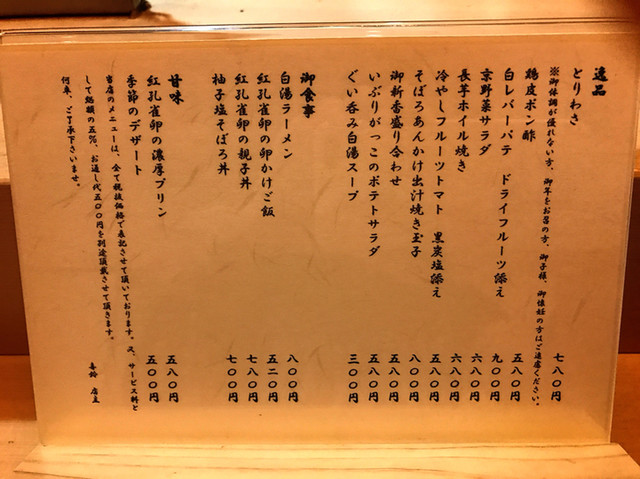 逸品
とりわさ 七八〇円
※御体調が優れない方、御年をお召の方、御子様、御懐妊の方はご遠慮ください。
鶏皮ポン酢 五八〇円
白レバーパテ ドライフルーツ添え 九〇〇円
京野菜サラダ 六八〇円
長芋ホイル焼き 六八〇円
冷やしフルーツトマト 黒炭塩添え 五八〇円
そぼろあんかけ出汁焼き玉子 八〇〇円
御新香盛り合わせ 五八〇円
いぶりがっこのポテトサラダ 五八〇円
ぐい呑み白湯スープ 三〇〇円
御食事
白湯ラーメン 八〇〇円
紅孔雀卵の卵かけご飯 五二〇円
紅孔雀卵の親子丼 七八〇円
柚子塩そぼろ丼 七〇〇円
甘味
紅孔雀卵の濃厚プリン 五八〇円
季節のデザート 五〇〇円
当店のメニューは、全て税抜価格で表記させて頂いております。又、サービス料と
して総額の五%、お通し代五〇〇円を別途頂戴させて頂きます。
何卒、ご了承下さいませ。
店主